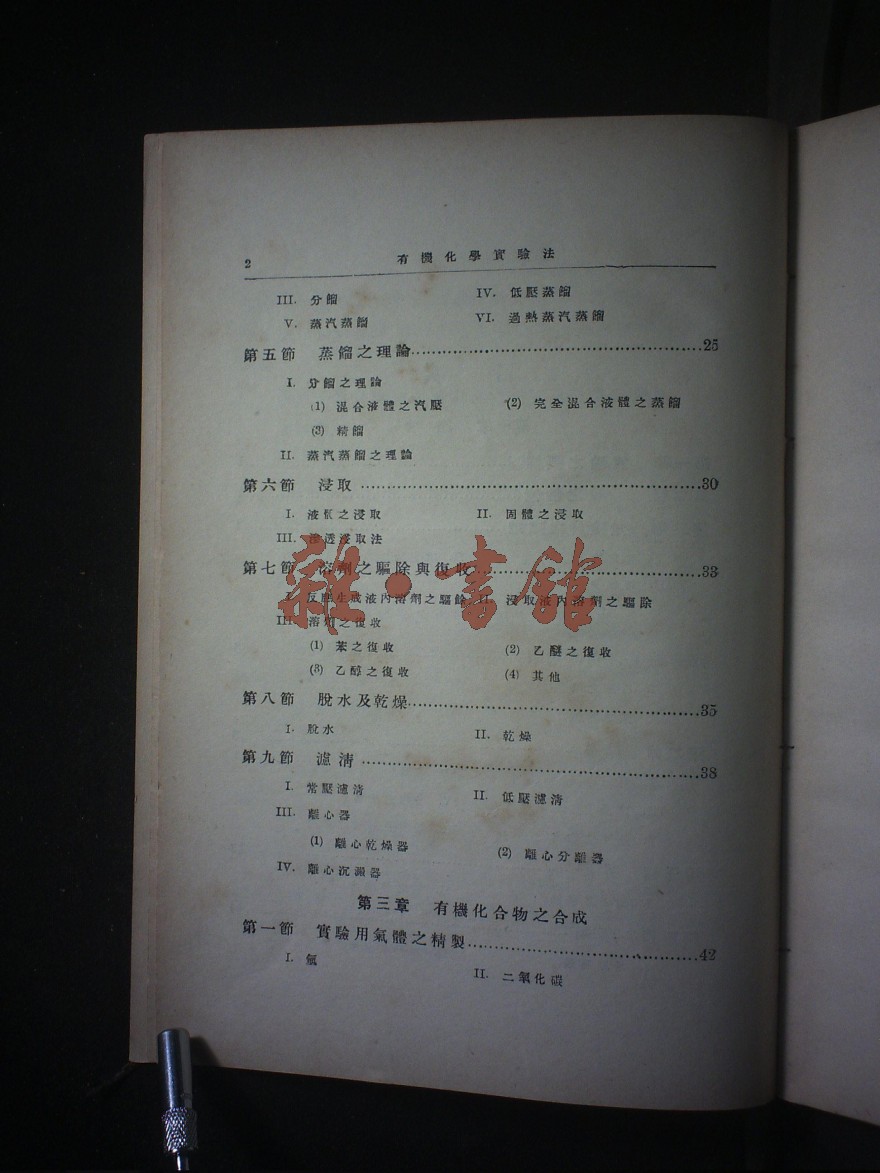 2 有機化學實驗法
III. 分餾 IV. 低壓蒸餾
V. 蒸汽蒸餾 VI. 過熱蒸汽蒸餾
第五節 蒸餾之理論 25
I. 分餾之理論
(1) 混合液體之汽壓 (2) 完全混合液體之蒸餾
(3) 精餾
II. 蒸汽蒸餾之理論
第六節 浸取 30
I. 液體之浸取 II. 固體之浸取
III. 滲透浸取法
第七節 溶劑之驅除與復收 33
I. 反應生成液內溶劑之驅除 II. 浸取液內溶劑之驅除
III. 溶劑之復收
(1) 苯之復收 (2) 乙醚之復收
(3) 乙醇之復收 (4) 其他
第八節 脫水及乾燥 35
I. 脫水 II. 乾燥
第九節 濾清 38
I. 常壓濾清 II. 低壓濾清
III. 離心器
(1) 離心乾燥器 (2) 離心分離器
IV. 離心沉澱器
第三章 有機化合物之合成
第一節 實驗用氣體之精製 42
I. II. 二氧化碳
雜·書館